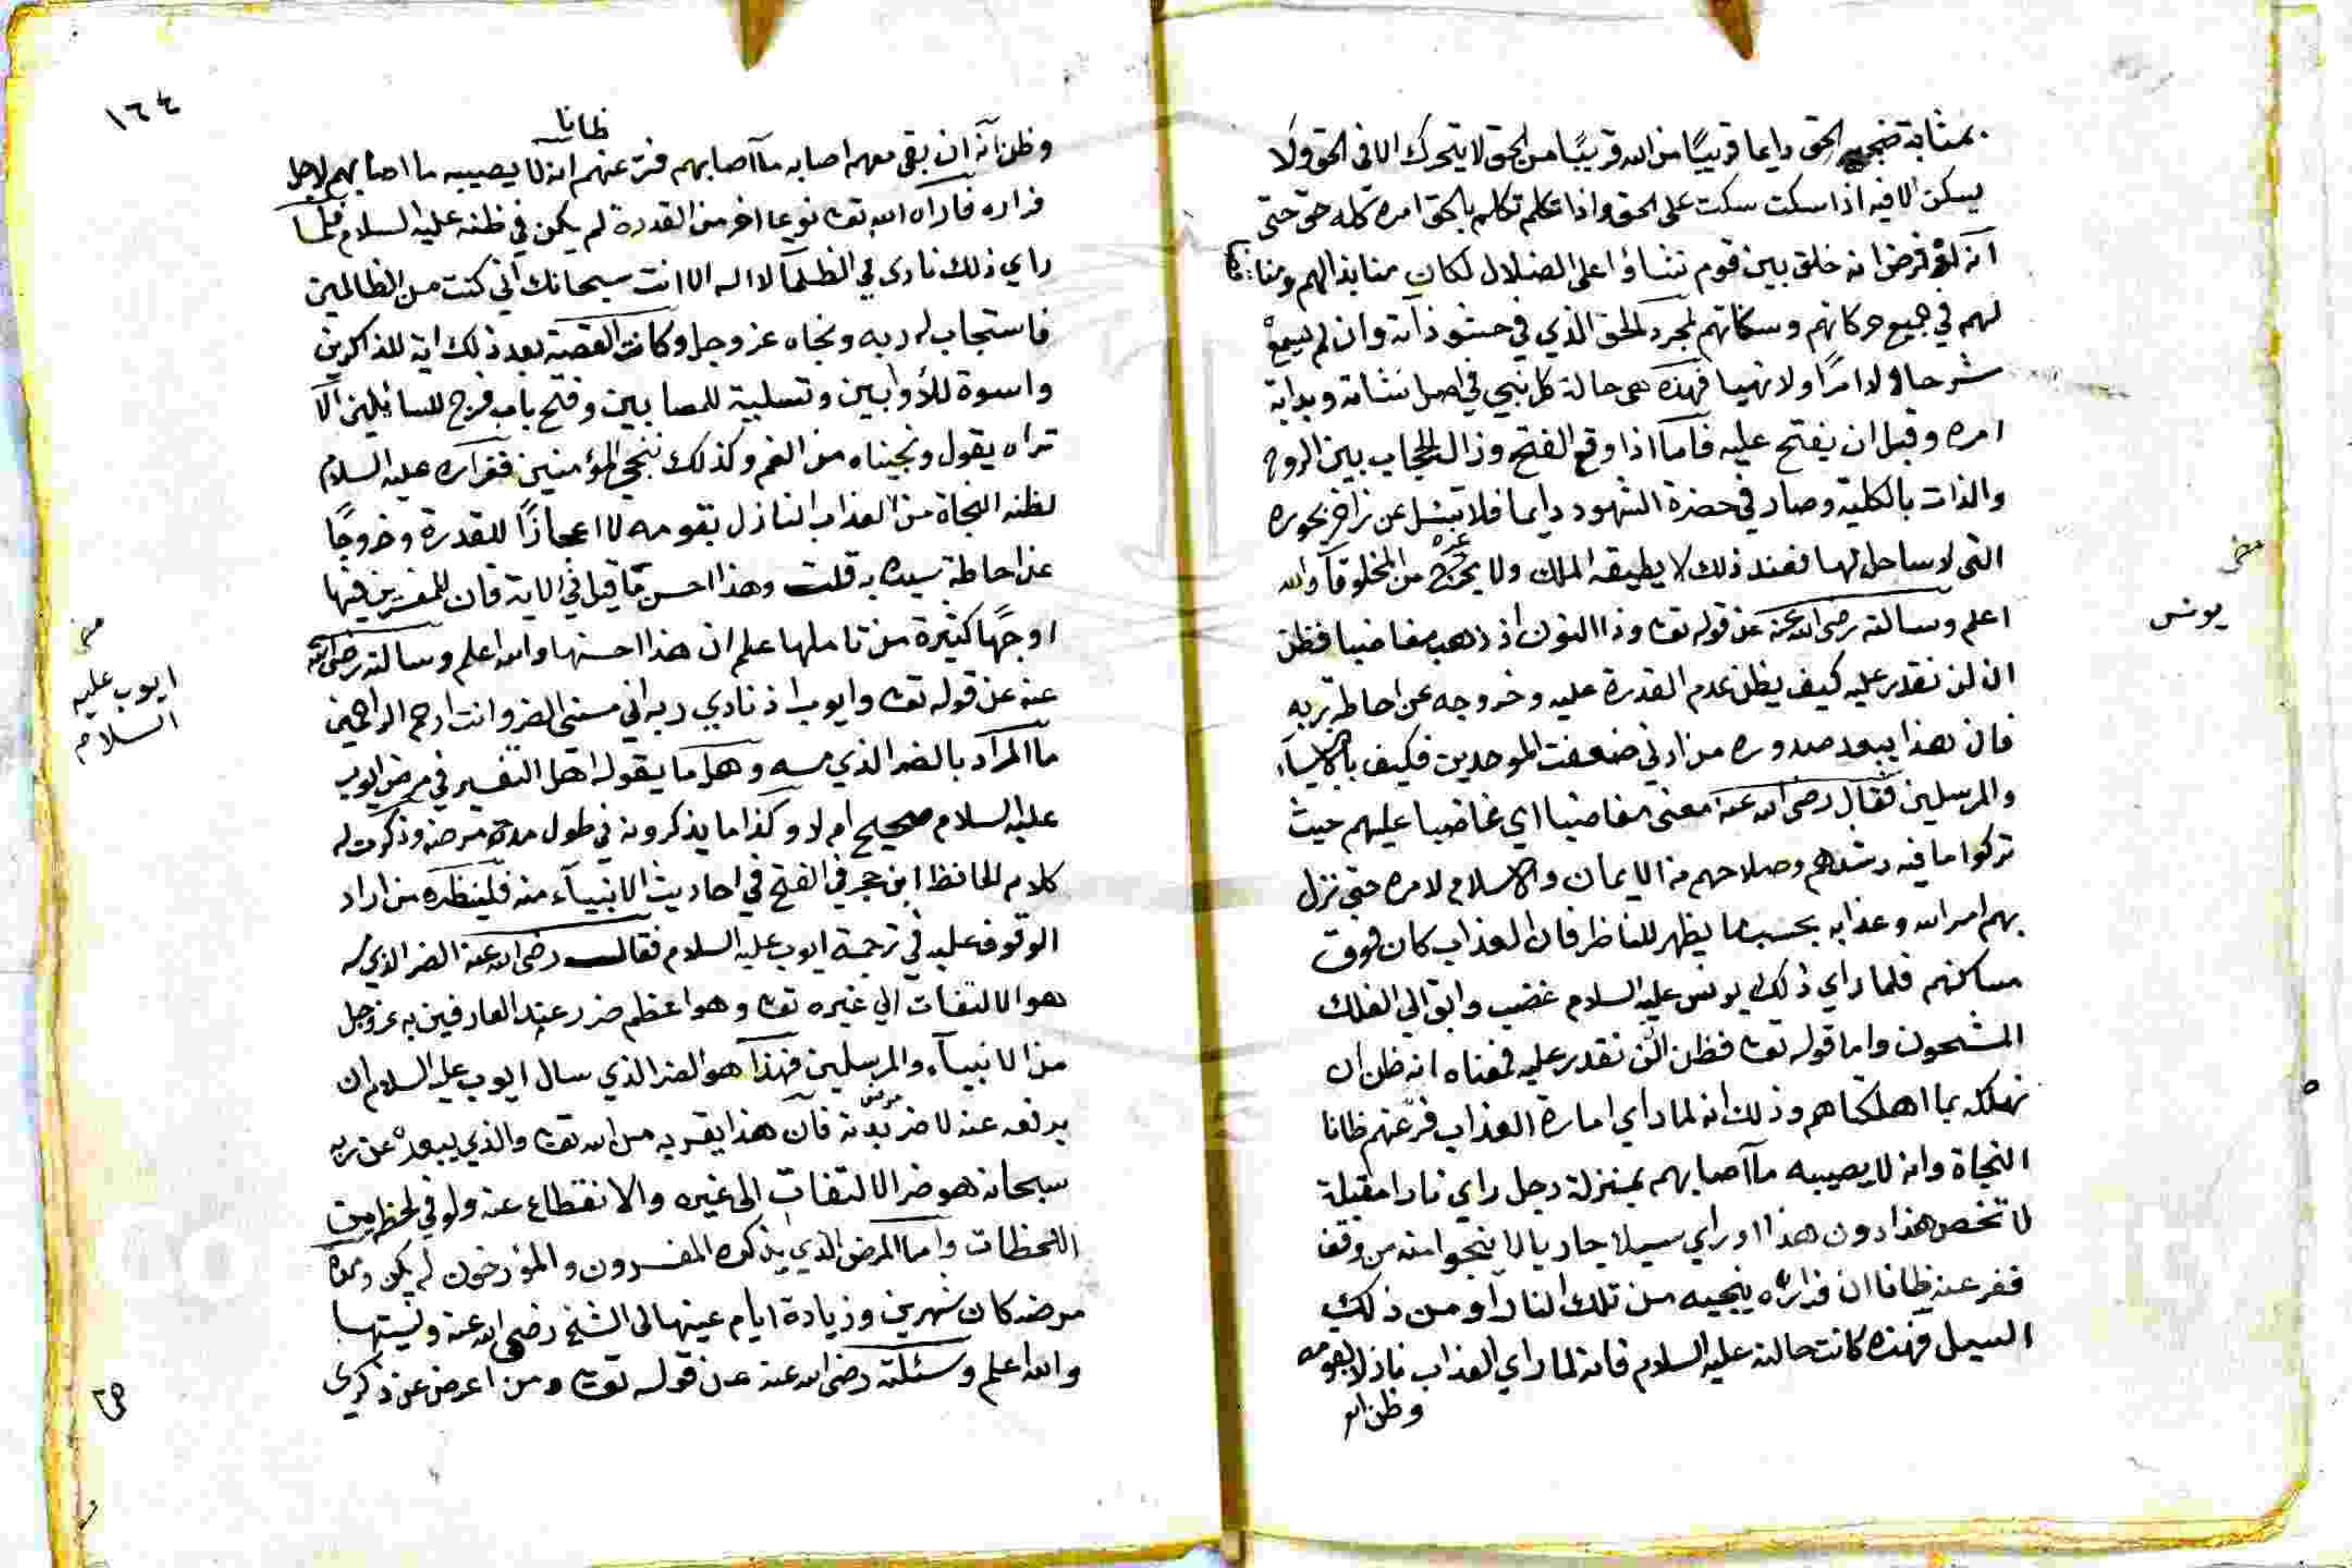 بمثابة ضجيع الحق دايما قريبًا من الله قريبًا من الحق لا يتحرك الا في الحق ولا
يسكن الا فيه اذا سكت سكت على الحق واذا تكلم تكلم بالحق امره كله حق حتى
انه لو فرض انه خلق بين قوم نشاؤا على الضلال لكان منابذا لهم ومناقضا
لهم في جميع حركاتهم وسكناتهم لمجرد الحق الذي في حشو ذاته وان لم يسمع
شرحا ولا امرًا ولا نهيا فهذه هي حالة كل نبي في اصل نشاته وبداية
امره وقبل ان يفتح عليه فاما اذا وقع الفتح وزال الحجاب بين الروح
والذات بالكلية وصار في حضرة الشهود دايما فلا تسئل عن زاخر بحوره
التي لا ساحل لها فعند ذلك لا يطيقه الملك ولا غيره من المخلوقات والله
اعلم وسالته رضي الله عنه عن قوله تعالى وذا النون اذ ذهب مغاضبا فظن
ان لن نقدر عليه كيف يظن عدم القدرة عليه وخروجه عن احاطة ربه
فان هذا يبعد صدوره من ادنى ضعفت الموحدين فكيف بالانبياء
والمرسلين فقال رضي الله عنه معنى مغاضبا اي غاضبا عليهم حيث
تركوا ما فيه رشدهم وصلاحهم من الايمان والاسلام لامره حتى نزل
بهم امر الله وعذابه بحسب ما يظهر للناظر فان العذاب كان فوق
مساكنهم فلما راي ذلك يونس عليه السلام غضب وابق الي الفلك
المشحون واما قوله تعالى فظن ان لن نقدر عليه فمعناه انه ظن ان
نهلكه بما اهلكناهم وذلك انه لما راي امارة العذاب فر عنهم ظانا
النجاة وانه لا يصيبه ما اصابهم بمنزلة رجل راي نارا مقبلة
لا تخص هذا دون هذا او راي سيلا جاريا لا ينجوا منه من وقف
ففر عنه ظانا ان فراره ينجيه من تلك النار او من ذلك
السيل فهذه كانت حالته عليه السلام فانه لما راي العذاب نازلا بقومه
وظن انه
يونس
١٦٤
ظانا
وظن انه ان بقى معهم اصابه ما اصابهم فر عنهم انه لا يصيبه ما اصابهم لاجل
فراره فاراه الله تعالى نوعا اخر من القدرة لم يكن في ظنه عليه السلام فلما
راي ذلك نادى في الظلمات لا اله الا انت سبحانك اني كنت من الظالمين
فاستجاب له ربه ونجاه عز وجل وكانت القصة بعد ذلك اية للذاكرين
واسوة للأوابين وتسلية للمصابين وفتح باب فرج للسائلين الا
تراه يقول ونجيناه من الغم وكذلك ننجي المؤمنين ففراره عليه السلام
لظنه النجاة من العذاب النازل بقومه لا اعجازًا للقدرة وخروجًا
عن احاطة سيده به قلت وهذا احسن ما قيل في الاية فان للمفسرين فيها
اوجهًا كثيرة من تاملها علم ان هذا احسنها والله اعلم وسالته رضي الله
عنه عن قوله تعالى وايوب اذ نادي ربه اني مسني الضر وانت ارحم الراحمين
ما المراد بالضر الذي مسه وهل ما يقوله اهل التفسير في مرض ايوب
عليه السلام صحيح ام لا وكذا ما يذكرونه في طول مدة مرضه وذكرت له
كلام الحافظ ابن حجر في الفتح في احاديث الانبياء منه فلينظره من اراد
الوقوف عليه في ترجمة ايوب عليه السلام فقال رضي الله عنه الضر الذي مسه
هو الالتفات الي غيره تعالى وهو اعظم ضرر عند العارفين به عز وجل
من الانبياء والمرسلين فهذا هو الضر الذي سال ايوب عليه السلام ان
يرفعه عنه لا ضر مرض بدنه فان هذا يقربه من الله تعالى والذي يبعده عن ربه
سبحانه هو ضر الالتفات الى غيره والانقطاع عنه ولو في لحظة من
اللحظات واما المرض الذي يذكره المفسرون والمؤرخون لم يكن ومدة
مرضه كان شهرين وزيادة ايام عينها لى الشيخ رضي الله عنه ونسيتها
والله اعلم وسئلته رضي الله عنه عن قوله تعالى ومن اعرض عن ذكري
ايوب عليه
السلام